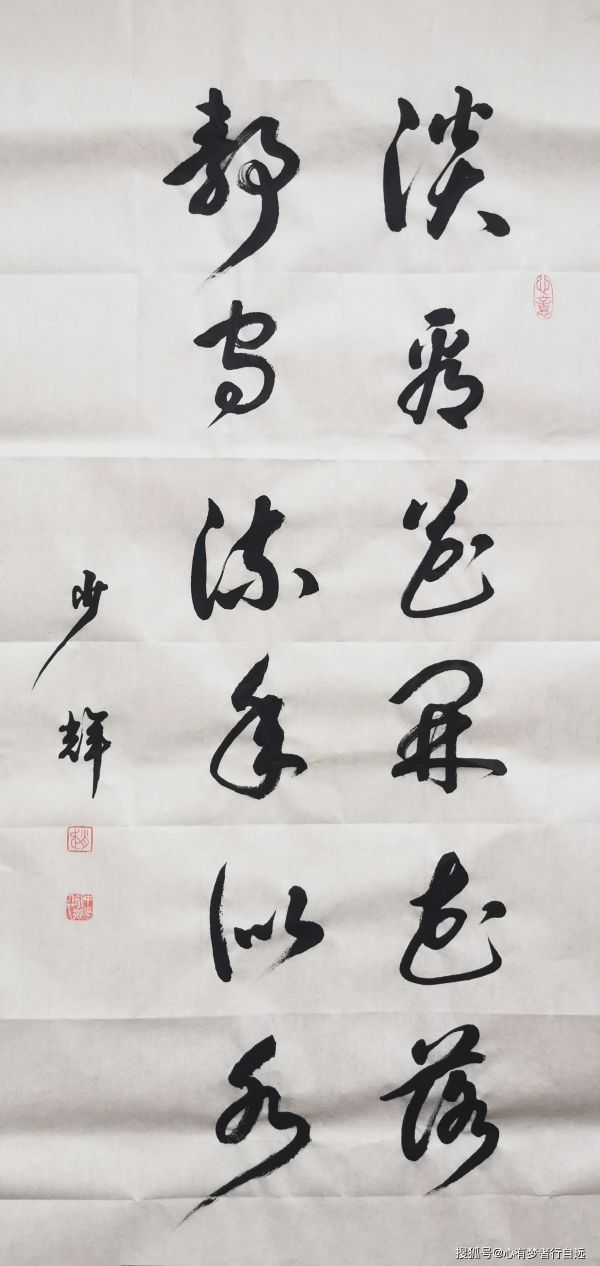 淡看花開花落
靜守流年似水
少輝
搜狐号@心有梦者行自远